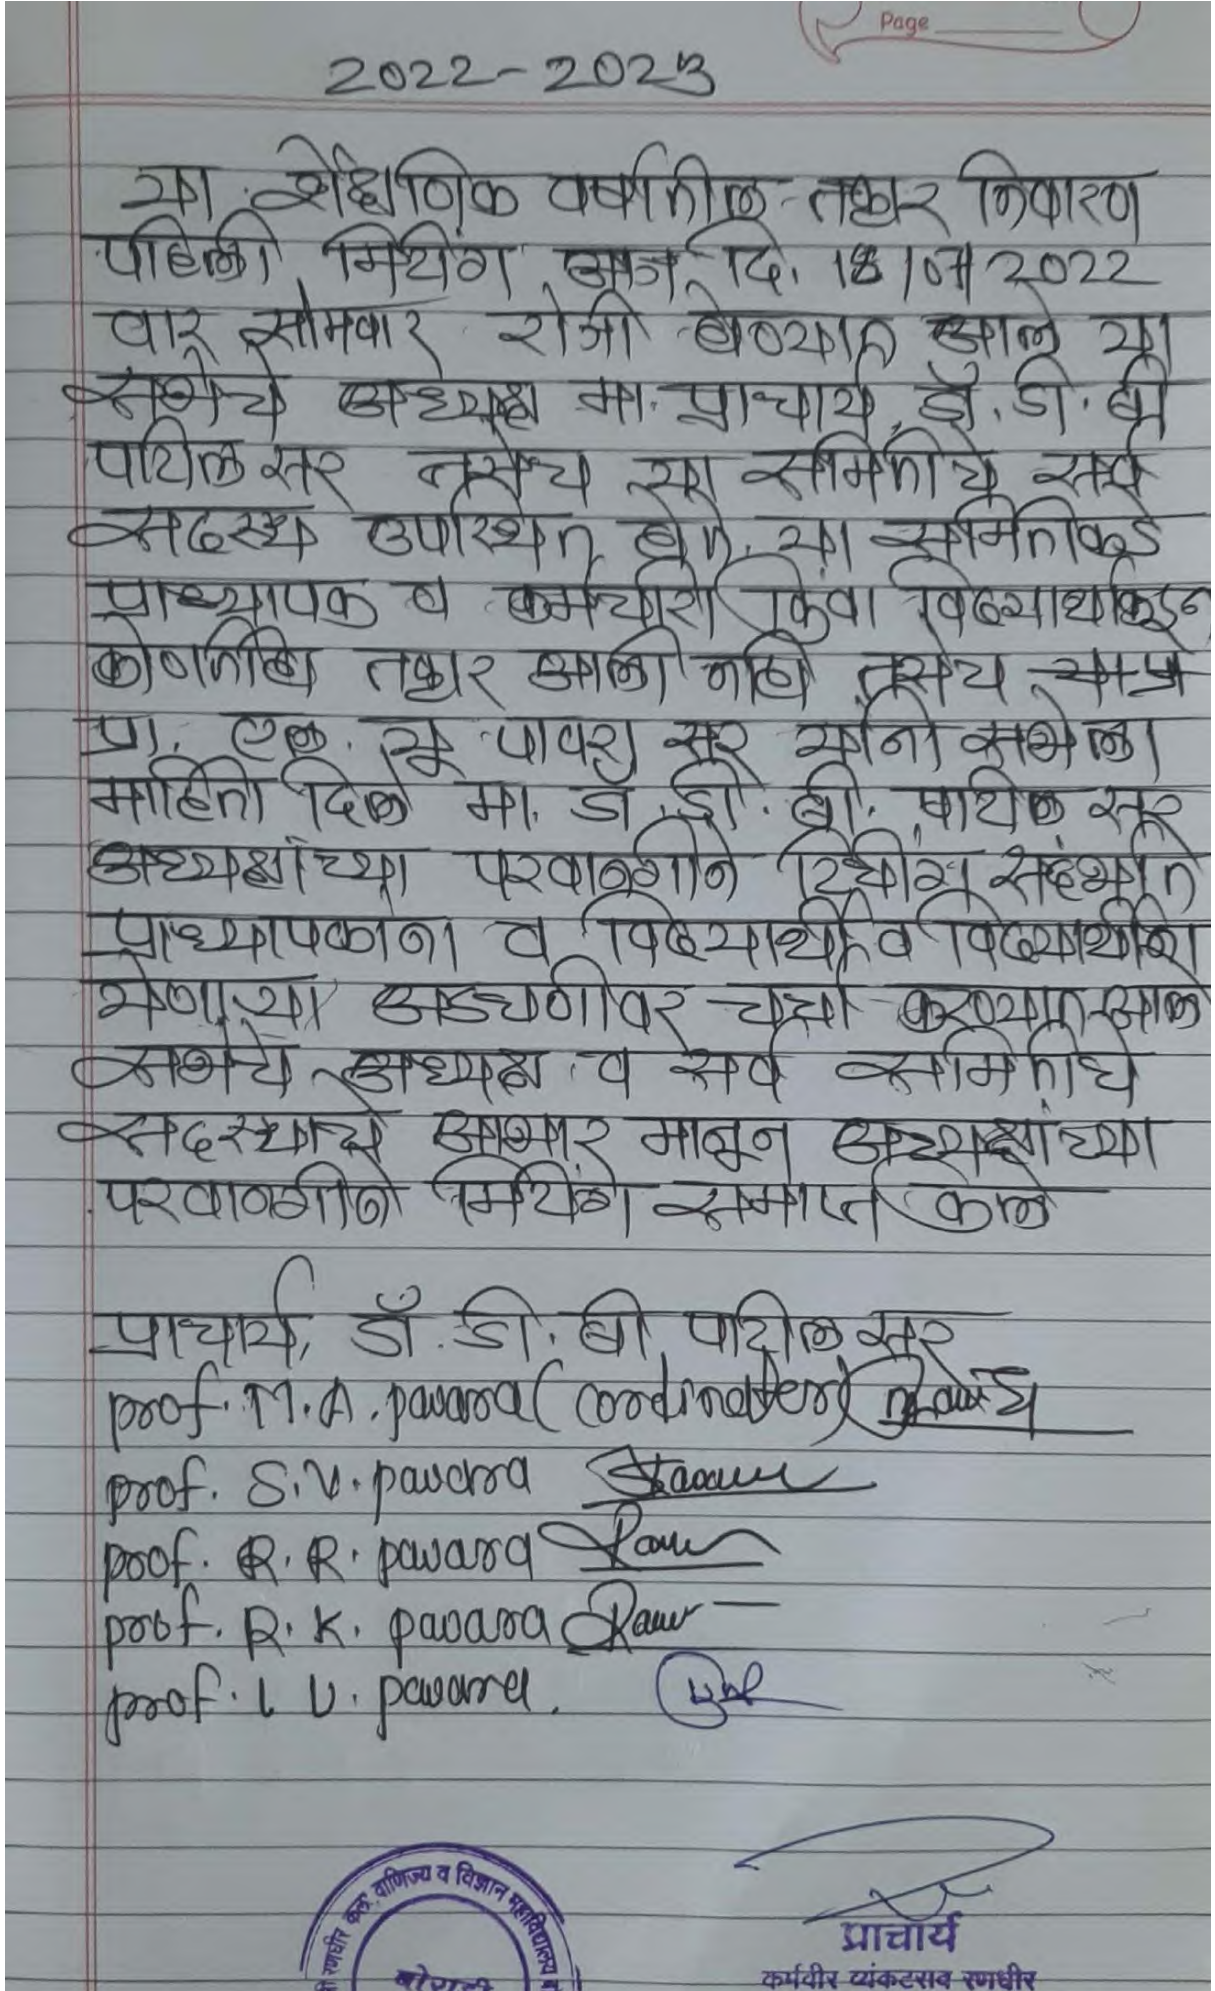 Page
2022-2023
या शैक्षणिक वर्षातील तक्रार निवारण
पहिली मिटींग आज दि. 18/07/2022
वार सोमवार रोजी घेण्यात आले या
सभेचे अध्यक्ष मा. प्राचार्य, डॉ. डी. बी
पाटील सर तसेच या समितीचे सर्व
सदस्य उपस्थित होते. या समितीकडे
प्राध्यापक व कर्मचारी किंवा विद्यार्थ्याकडून
कोणतीही तक्रार आली नाही तसेच
प्रा. एल. यू पावरा सर यांनी सभेला
माहिती दिले मा. डॉ. डी. बी. पाटील सर
अध्यक्षांच्या परवानगीने
प्राध्यापकांना व विद्यार्थी व
येणाऱ्या अडचणीवर चर्चा करण्यात आले
सभेचे अध्यक्ष व सर्व समितीचे
सदस्याचे आभार मानून अध्यक्षांच्या
परवानगीने मिटींग समाप्त केले
प्राचार्य, डॉ. डी. बी पाटील सर
prof. M. A. pawara (cordinater)
prof. S. V. pavara
prof. R. R. pavara
prof. R. K. pavara
prof. L U. pawara.
रणधीर कला, वाणिज्य व विज्ञान महाविद्यालय
बोराडी
प्राचार्य
कर्मवीर व्यंकटराव रणधीर